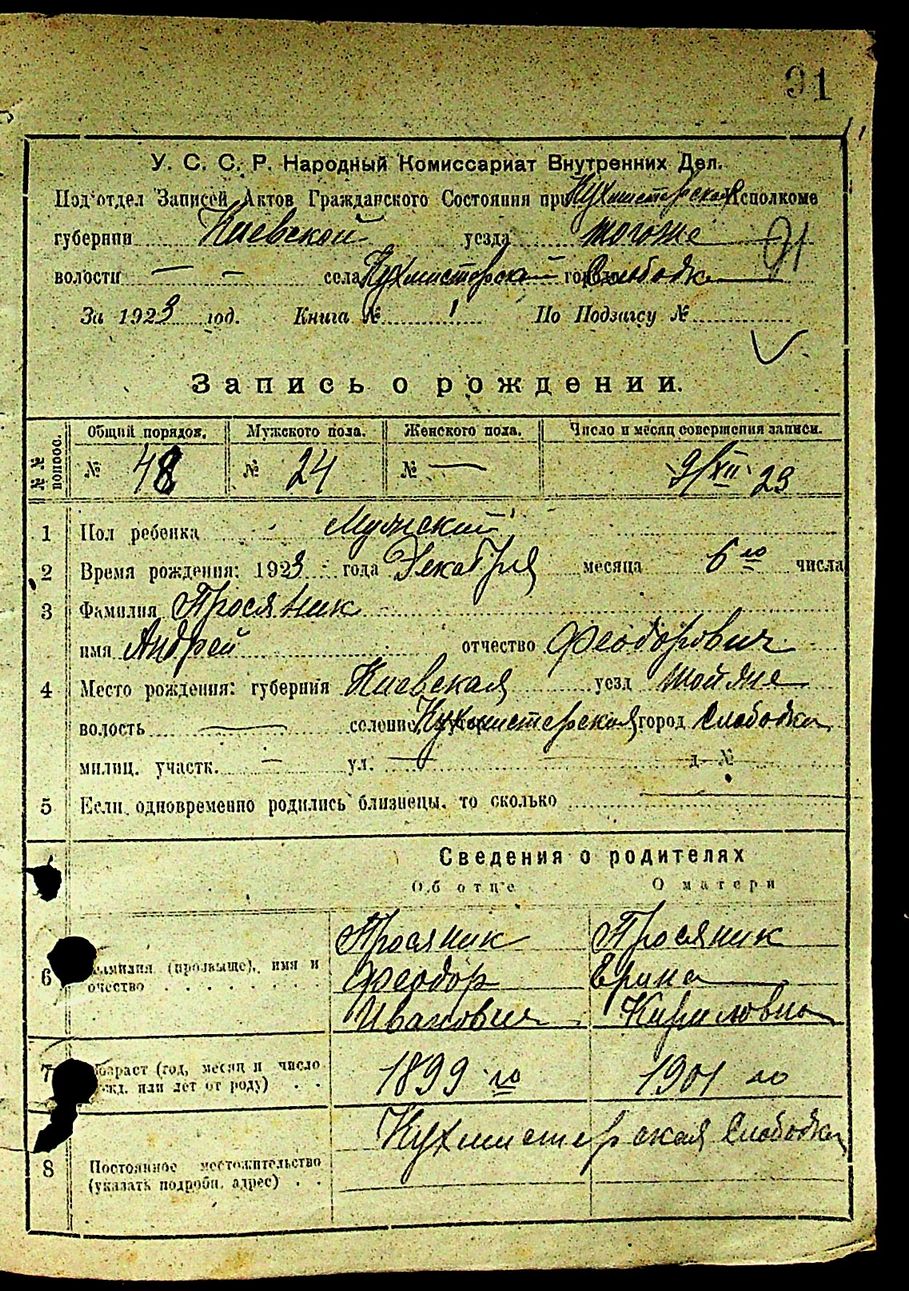 91
У. С. С. Р. Народный Комиссариат Внутренних Дел.
Под'отдел Записей Актов Гражданского Состояния при Кухмистерской Исполкоме
губернии Киевской уезда тогоже 91
волости — — села Кухмистерской города Слободк
За 1923 год. Книга № 1 По Подзагсу №
Запись о рождении.
№№ по порядк. Общий порядок. Мужского пола. Женского пола. Число и месяц совершения записи.
№ 48 № 24 № — 9/XII 23
1 Пол ребенка Мужский
2 Время рождения: 1923 года Декабря месяца 6го числа
3 Фамилия Просяник
имя Андрей отчество Феодорович
4 Место рождения: губерния Киевская уезд
волость — селение Кухмистерская город Слободка
милиц. участк. — ул. — д. №
5 Если одновременно родились близнецы, то сколько —
Сведения о родителях
Об отце О матери
Просяник Просяник
6 Фамилия (прозвыще), имя и Феодор Ерина
отчество Иванович Кириловна
7 Возраст (год, месяц и число 1899 го 1901 го
рожд. или лет от роду)
Кухмистерская Слободка
8 Постоянное местожительство
(указать подробн. адрес)